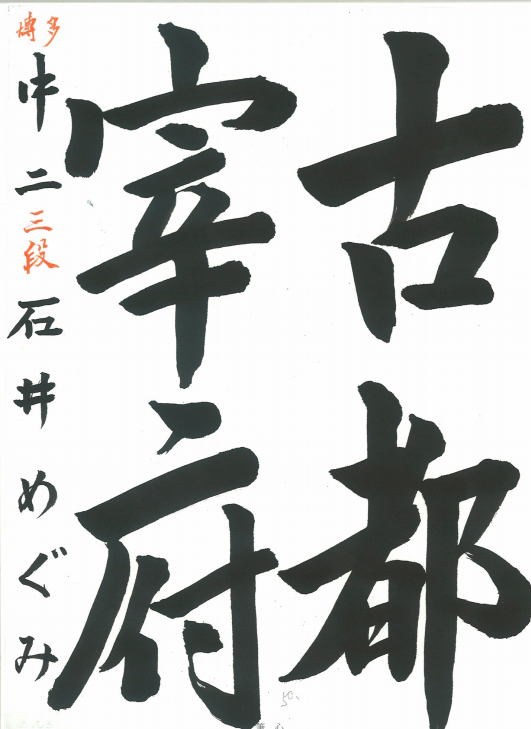 古都
宰府
博多
中二三段石井めぐみ